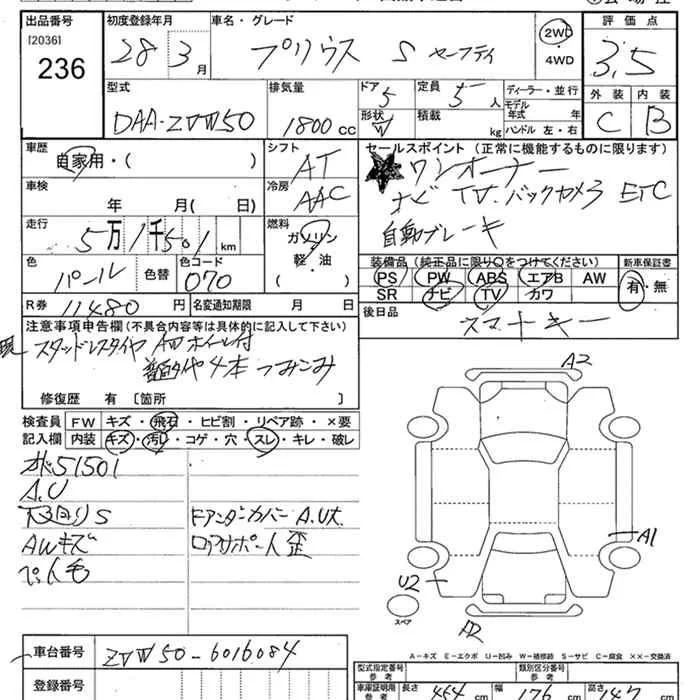 出品番号
[2036]
236
初度登録年月
28 3月
車名・グレード
プリウス S セーフティ
2WD
・4WD
評価点
3.5
型式
DAA-ZVW50
排気量
1800cc
ドア
5
形状
定員
5人
積載
kg
ディーラー・並行
モデル年式 年
ハンドル 左・右
外装
C
内装
B
車歴
自家用・( )
シフト
AT
車検
年 月( 日)
冷房
AAC
走行
5万1千501km
燃料
ガソリン
軽・油
( )
色
パール
色替
色コード
070
R券 11480円
名変通知期限 月 日
セールスポイント (正常に機能するものに限ります)
★ワンオーナー
ナビ TV.バックカメラ ETC
自動ブレーキ
装備品 (純正品に限り○をつけてください)
PS PW ABS エアB AW
SR ナビ TV カワ
新車保証書
有・無
後日品
スマートキー
注意事項申告欄 (不具合内容等は具体的に記入して下さい)
スタッドレスタイヤ AWホイール付
タイヤ4本つみこみ
修復歴 有 〔箇所
検査員記入欄
FW キズ・飛石・ヒビ割・リペア跡・×要
内装 キズ・汚レ・コゲ・穴・スレ・キレ・破レ
オド51501
A.U
下回りS
AWキズ
ドアンダーカバーA.U大
ロアサポート歪
A2
A1
U2
A2
スペア
A-キズ E-エクボ U-凹み W-補修跡 S-サビ C-腐食 ××-交換済
車台番号
ZVW50-6016084
登録番号
型式指定番号
参考
類別区分番号
参考
車庫証明用
参考
長さ 454cm
幅 176cm
高さ 147cm